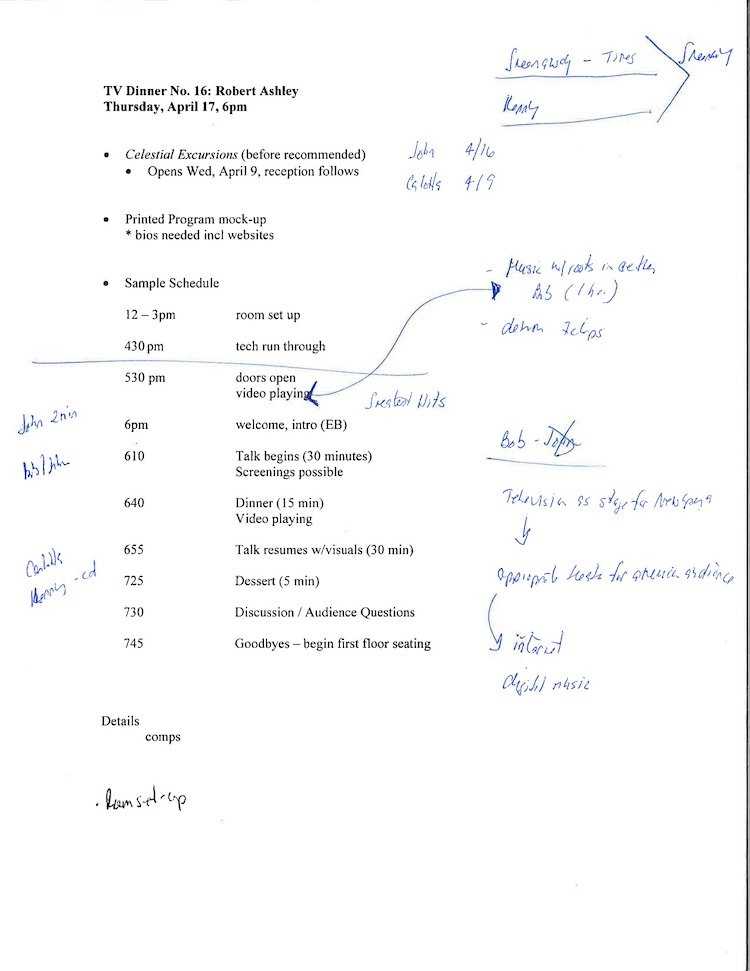 TV Dinner No. 16: Robert Ashley
Thursday, April 17, 6pm
Kenny
• Celestial Excursions (before recommended)
• Opens Wed, April 9, reception follows
John 4/16
4/9
• Printed Program mock-up
* bios needed incl websites
• Sample Schedule
12 – 3pm room set up
430 pm tech run through
530 pm doors open
video playing
6pm welcome, intro (EB)
610 Talk begins (30 minutes)
Screenings possible
640 Dinner (15 min)
Video playing
655 Talk resumes w/visuals (30 min)
725 Dessert (5 min)
730 Discussion / Audience Questions
745 Goodbyes – begin first floor seating
- Music w/roots in
Bob (1 hr.)
Greatest Hits
John 2min
Bob/John
Bob - John
Television as stage for
for audience
internet
digital music
Details
comps
. Room set-up